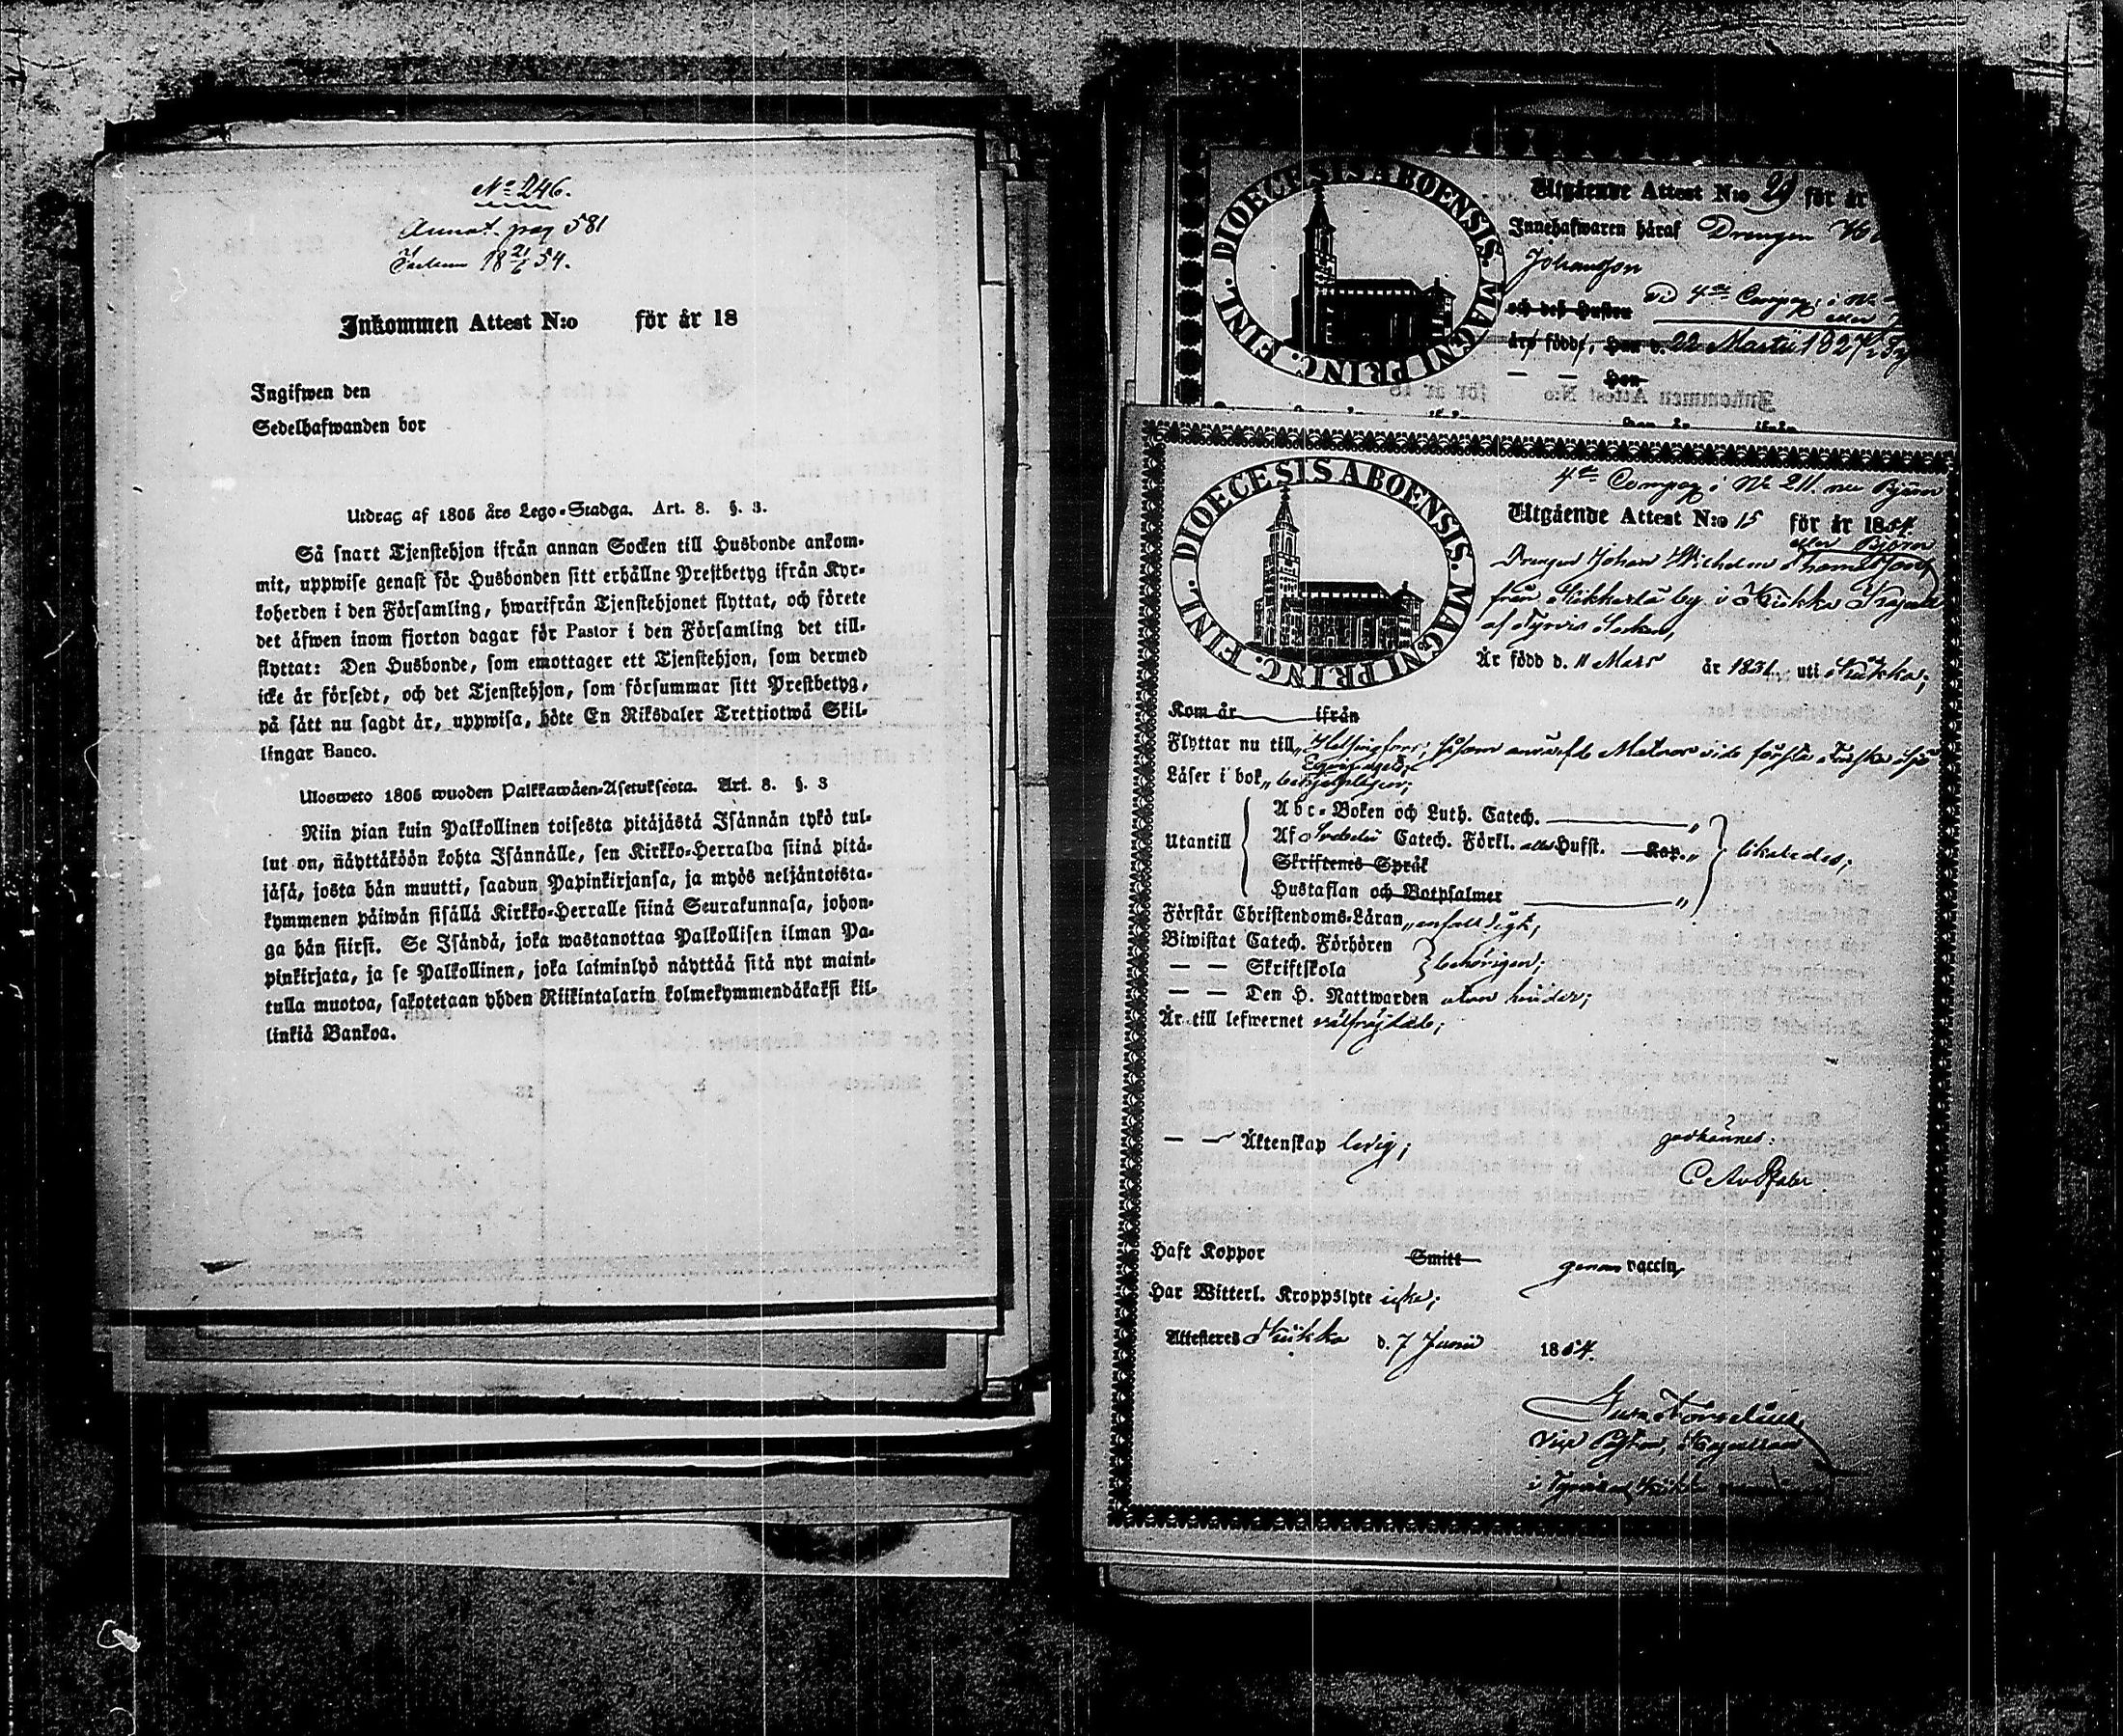 No 246.
Annot. pag 581
18 21/6 54.
Inkommen Attest N:o för år 18
Ingifwen den
Sedelhafwanden bor
Utdrag af 1805 års Lego-Stadga. Art. 8. §. 3.
Så snart Tjenstehjon ifrån annan Socken till Husbonde ankom-
mit, uppwise genast för Husbonden sitt erhållne Prestbetyg ifrån Kyr-
koherden i den Församling, hwarifrån Tjenstehjonet flyttat, och förete
det äfwen inom fjorton dagar för Pastor i den Församling det till-
flyttat: Den Husbonde, som emottager ett Tjenstehjon, som dermed
icke är försedt, och det Tjenstehjon, som försummar sitt Prestbetyg,
på sätt nu sagdt är, uppwisa, böte En Riksdaler Trettiotwå Skil-
lingar Banco.
Ulosweto 1805 wuoden Palkkawäen-Asetuksesta. Art. 8. §. 3
Niin pian kuin Palkollinen toisesta pitäjästä Isännän tykö tul-
lut on, näyttäköön kohta Isännälle, sen Kirkko-Herralda siinä pitä-
jäsä, josta hän muutti, saadun Papinkirjansa, ja myös neljäntoista-
kymmenen päiwän sisällä Kirkko-Herralle siinä Seurakunnasa, johon-
ga hän siirsi. Se Isändä, joka wastanottaa Palkollisen ilman Pa-
pinkirjata, ja se Palkollinen, joka laiminlyö näyttää sitä nyt maini-
tulla muotoa, sakotetaan yhden Riikintalarin kolmekymmendäkaksi kil-
linkiä Bankoa.
DIOECESIS ABOENSIS. MAGNI PRINC. FINL.
Utgående Attest N:o 29 för år
Innehafwaren häraf Drengen
Johansson
4de Compag: i No
och deß Hustru
äro födde, Han d. 22 Martii 1827
— — Hon
4de Compag i No 211. nu Björn
DIOECESIS ABOENSIS. MAGNI PRINC. FINL.
Utgående Attest N:o 15 för år 1854.
eller Björn
Drengen Johan Wilhelm Thomasson
från Kikkerlä by i Kiikka Kapell
af Tyrvis Socken,
Är född d. 11 Mars år 1831 uti Kiikka;
Kom år ifrån
Flyttar nu till Helsingfors, såsom Matros vid första Finska
Läser i bok
Utantill
Abc-Boken och Luth. Catech.
Af Svebelii Catech. Förkl. Hufst. Kap.
likaledes;
Skriftenes Språk
Hustaflan och Botpsalmer
Förstår Christendoms-Läran enfaldigt;
Biwistat Catech. Förhören
— — Skriftskola
behörigen;
— — Den H. Nattwarden utan hinder;
Är till lefwernet välfräjdade;
— — Äktenskap ledig;
godkännes:
Haft Koppor Smitt genom vaccin,
Har Witterl. Kroppslyte icke;
Attesteres Kiikka d. 7 Junii 1854.
Vice Pastor, Kapellan
i Tyrvis och Kiikka